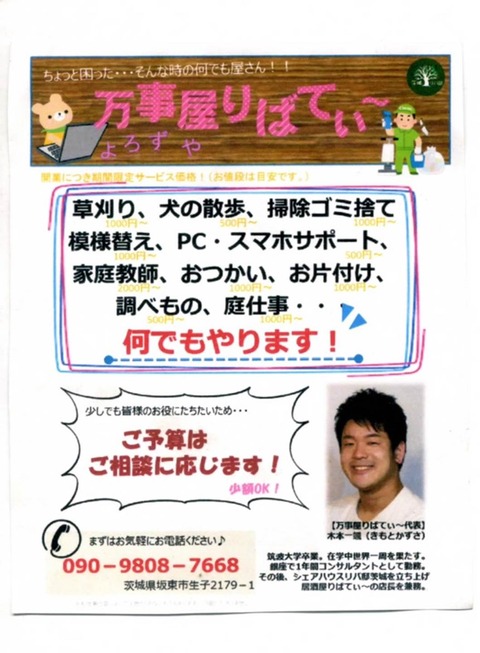 ちょっと困った・・・そんな時の何でも屋さん！！
万事屋りばてぃ～
よろずや
開業につき期間限定サービス価格！（お値段は目安です。）
草刈り、犬の散歩、掃除ゴミ捨て
1000円～ 500円～ 1000円～
模様替え、PC・スマホサポート、
1000円～ 500円～
家庭教師、おつかい、お片付け、
2000円～ 1000円～ 1000円～
調べもの、庭仕事・・・
500円～ 1000円～
何でもやります！
少しでも皆様のお役にたちたいため・・・
ご予算は
ご相談に応じます！
少額OK！
【万事屋りばてぃ～代表】
木本一颯（きもとかずさ）
まずはお気軽にお電話ください♪
090－9808－7668
茨城県坂東市生子2179－1
筑波大学卒業。在学中世界一周を果たす。
銀座で1年間コンサルタントとして勤務。
その後、シェアハウスリバ邸茨城を立ち上げ
居酒屋りばてぃ～の店長を兼務。